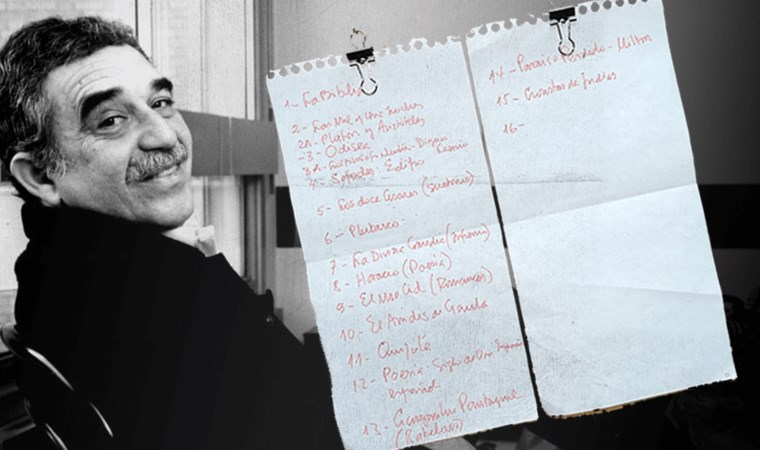 1- La Biblia
2- Las Mil y una Noches
2A- Platón y Aristóteles
-3- Odisea
3A-
4- Sófocles- Edipo
5- Los doce Césares (Suetonio)
6- Plutarco-
7- La Divina Comedia (Infierno)
8- Horacio (Poesía)
9- El Mio Cid (Romances)
10- El Amadis de Gaula
11- Quijote
12- Poesia- Siglo de Oro
español
13- Gargantua Pantagruel
(Rabelais)
14- Paraiso Perdido- Milton
15- Cronistas de Indias
16-